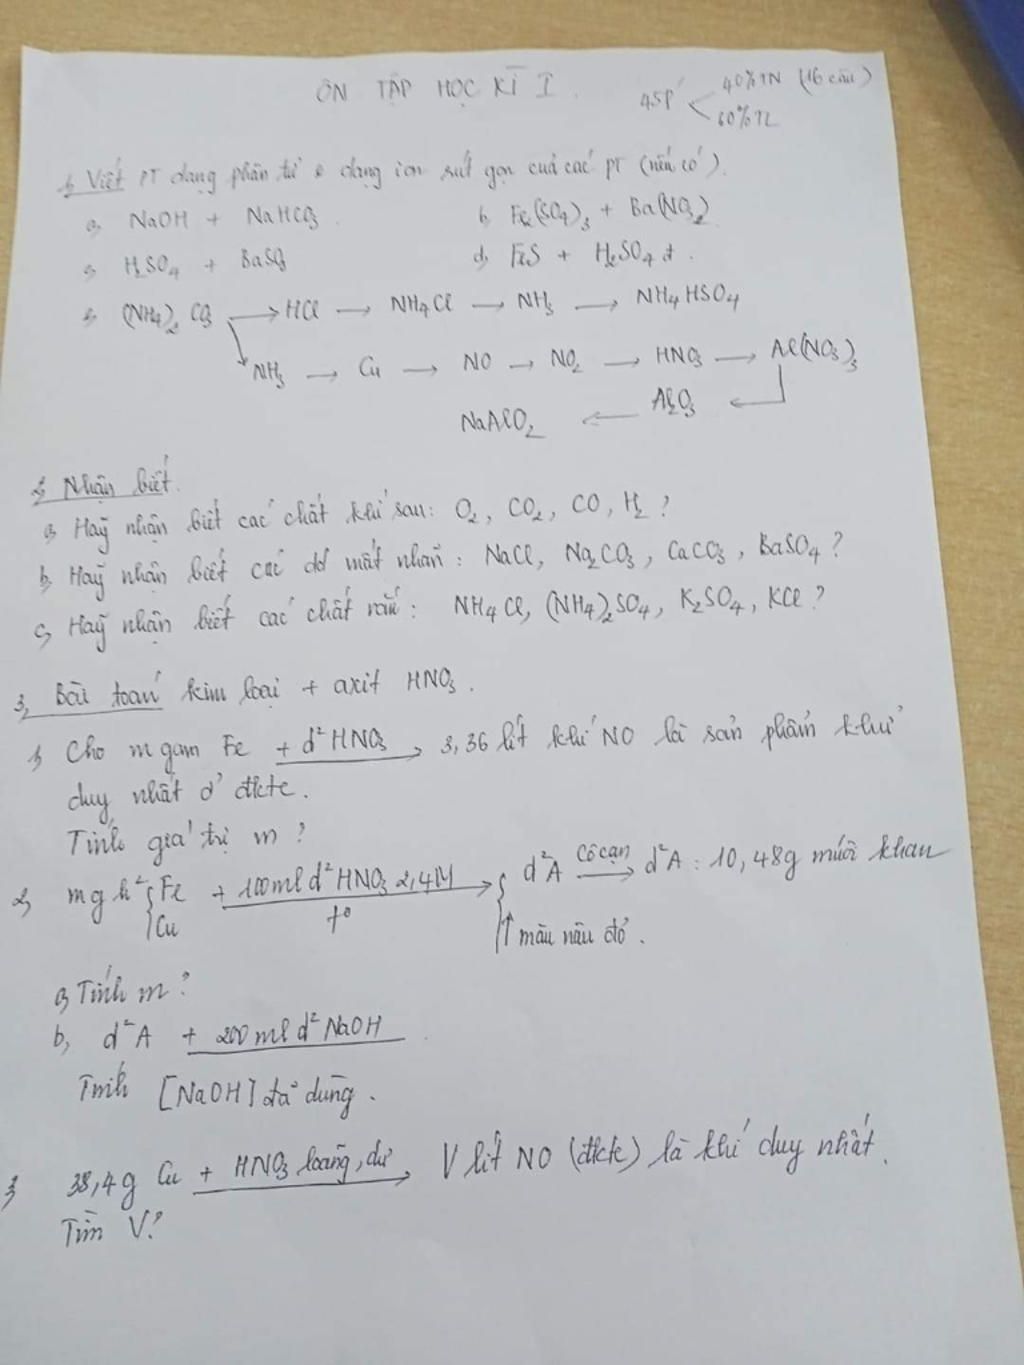 ÔN TẬP HỌC KÌ I.
45P' < 40%TN (16 câu)
60%TL
1, Viết PT dạng phân tử & dạng ion rút gọn của các PT (nếu có).
a, NaOH + NaHCO3. b, Fe2(SO4)3 + Ba(NO3)2
c, H2SO4 + BaSO3 d, FeS + H2SO4 đ.
e, (NH4)2CO3 → HCl → NH4Cl → NH3 → NH4HSO4
NH3 → Cu → NO → NO2 → HNO3 → Al(NO3)3
NaAlO2 ← Al2O3
2, Nhận biết.
a, Hãy nhận biết các chất khí sau: O2, CO2, CO, H2?
b, Hãy nhận biết các dd mất nhãn: NaCl, Na2CO3, CaCO3, BaSO4?
c, Hãy nhận biết các chất rắn: NH4Cl, (NH4)2SO4, K2SO4, KCl?
3, Bài toán kim loại + axit HNO3.
1, Cho m gam Fe + d² HNO3 → 3,36 lít khí NO là sản phẩm khử
duy nhất ở đktc.
Tính giá trị m?
2, m g h² { Fe Cu + 100ml d² HNO3 2,4M t° → { d²A Cô cạn → d²A: 10,48g muối khan
↑ màu nâu đỏ.
a, Tính m?
b, d²A + 200ml d² NaOH
Tính [NaOH] đã dùng.
3, 38,4g Cu + HNO3 loãng, dư → V lít NO (đktc) là khí duy nhất.
Tìm V?